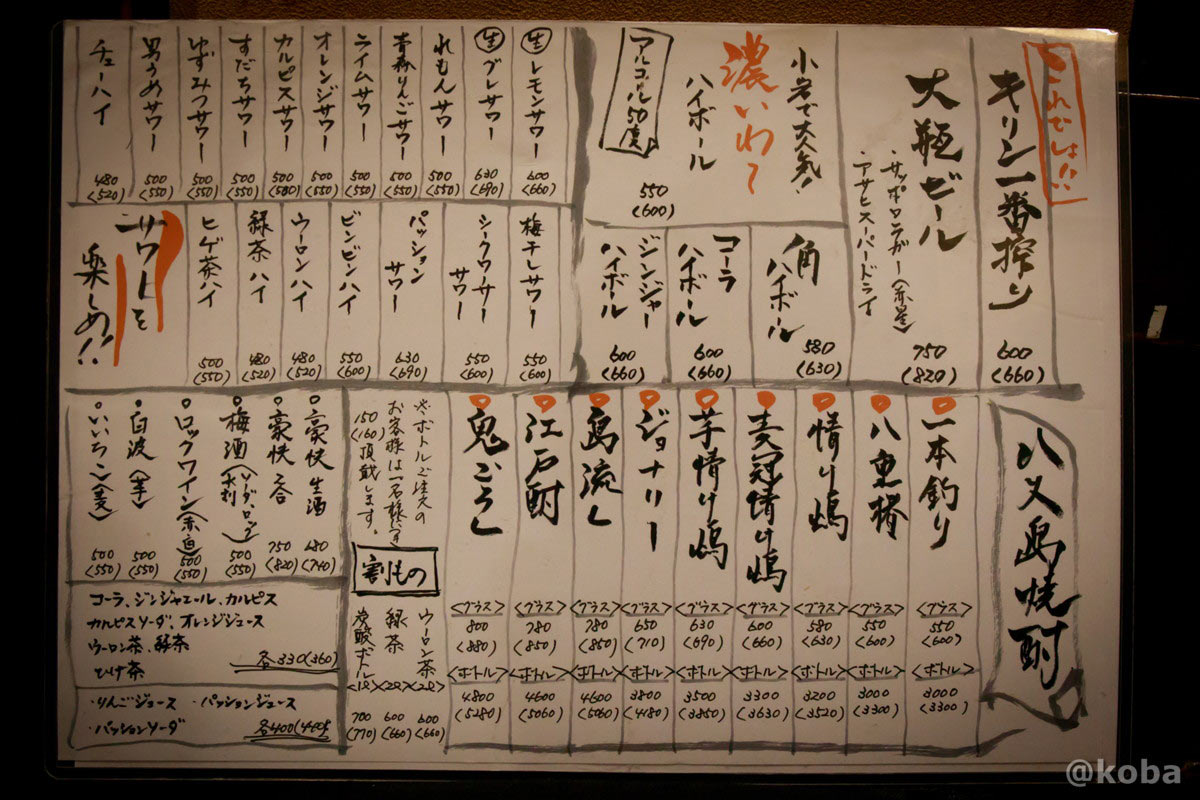 これでしょ!!
キリン一番搾り
600
(660)
大瓶ビール
・サッポロラガー(赤星)
・アサヒスーパードライ
750
(820)
小岩で大人気!
濃いわ〜
ハイボール
アルコール50度
550
(600)
角
ハイボール
580
(630)
コーラ
ハイボール
600
(660)
ジンジャー
ハイボール
600
(660)
生レモンサワー
600
(660)
生グレサワー
630
(690)
れもんサワー
500
(550)
青森りんごサワー
500
(550)
ライムサワー
500
(550)
オレンジサワー
500
(550)
カルピスサワー
500
(580)
すだちサワー
500
(550)
ゆずみつサワー
500
(550)
男うめサワー
500
(550)
チューハイ
480
(520)
梅干しサワー
550
(600)
シークワーサー
サワー
550
(600)
パッション
サワー
630
(690)
ビンビンハイ
550
(600)
ウーロンハイ
480
(520)
緑茶ハイ
480
(520)
ヒゲ茶ハイ
500
(550)
サワーを
楽しめ!!
八丈島焼酎
一本釣り
<グラス>
550
(600)
<ボトル>
3000
(3300)
八重椿
<グラス>
550
(600)
<ボトル>
3000
(3300)
情け嶋
<グラス>
580
(630)
<ボトル>
3200
(3520)
麦冠情け嶋
<グラス>
600
(660)
<ボトル>
3300
(3630)
芋情け嶋
<グラス>
630
(690)
<ボトル>
3500
(3850)
ジョナリー
<グラス>
650
(710)
<ボトル>
3800
(4180)
島流し
<グラス>
780
(850)
<ボトル>
4600
(5060)
江戸酎
<グラス>
780
(850)
<ボトル>
4600
(5060)
鬼ごろし
<グラス>
800
(880)
<ボトル>
4800
(5280)
※ボトルご注文の
お客様は一名様につき
150
(160)頂戴します。
割りもの
ウーロン茶
<2ℓ>
600
(660)
緑茶
<2ℓ>
600
(660)
炭酸ボトル
<1ℓ>
700
(770)
豪快 生酒
680
(740)
豪快 二合
750
(820)
梅酒(ソーダ、ロック、水割)
500
(550)
ロックワイン(赤・白)
500
(550)
白波(芋)
500
(550)
いいちこ(麦)
500
(550)
コーラ、ジンジャエール、カルピス
カルピスソーダ、オレンジジュース
ウーロン茶、緑茶
ひげ茶
各330(360)
・りんごジュース ・パッションジュース
・パッションソーダ
各400(440)
@koba